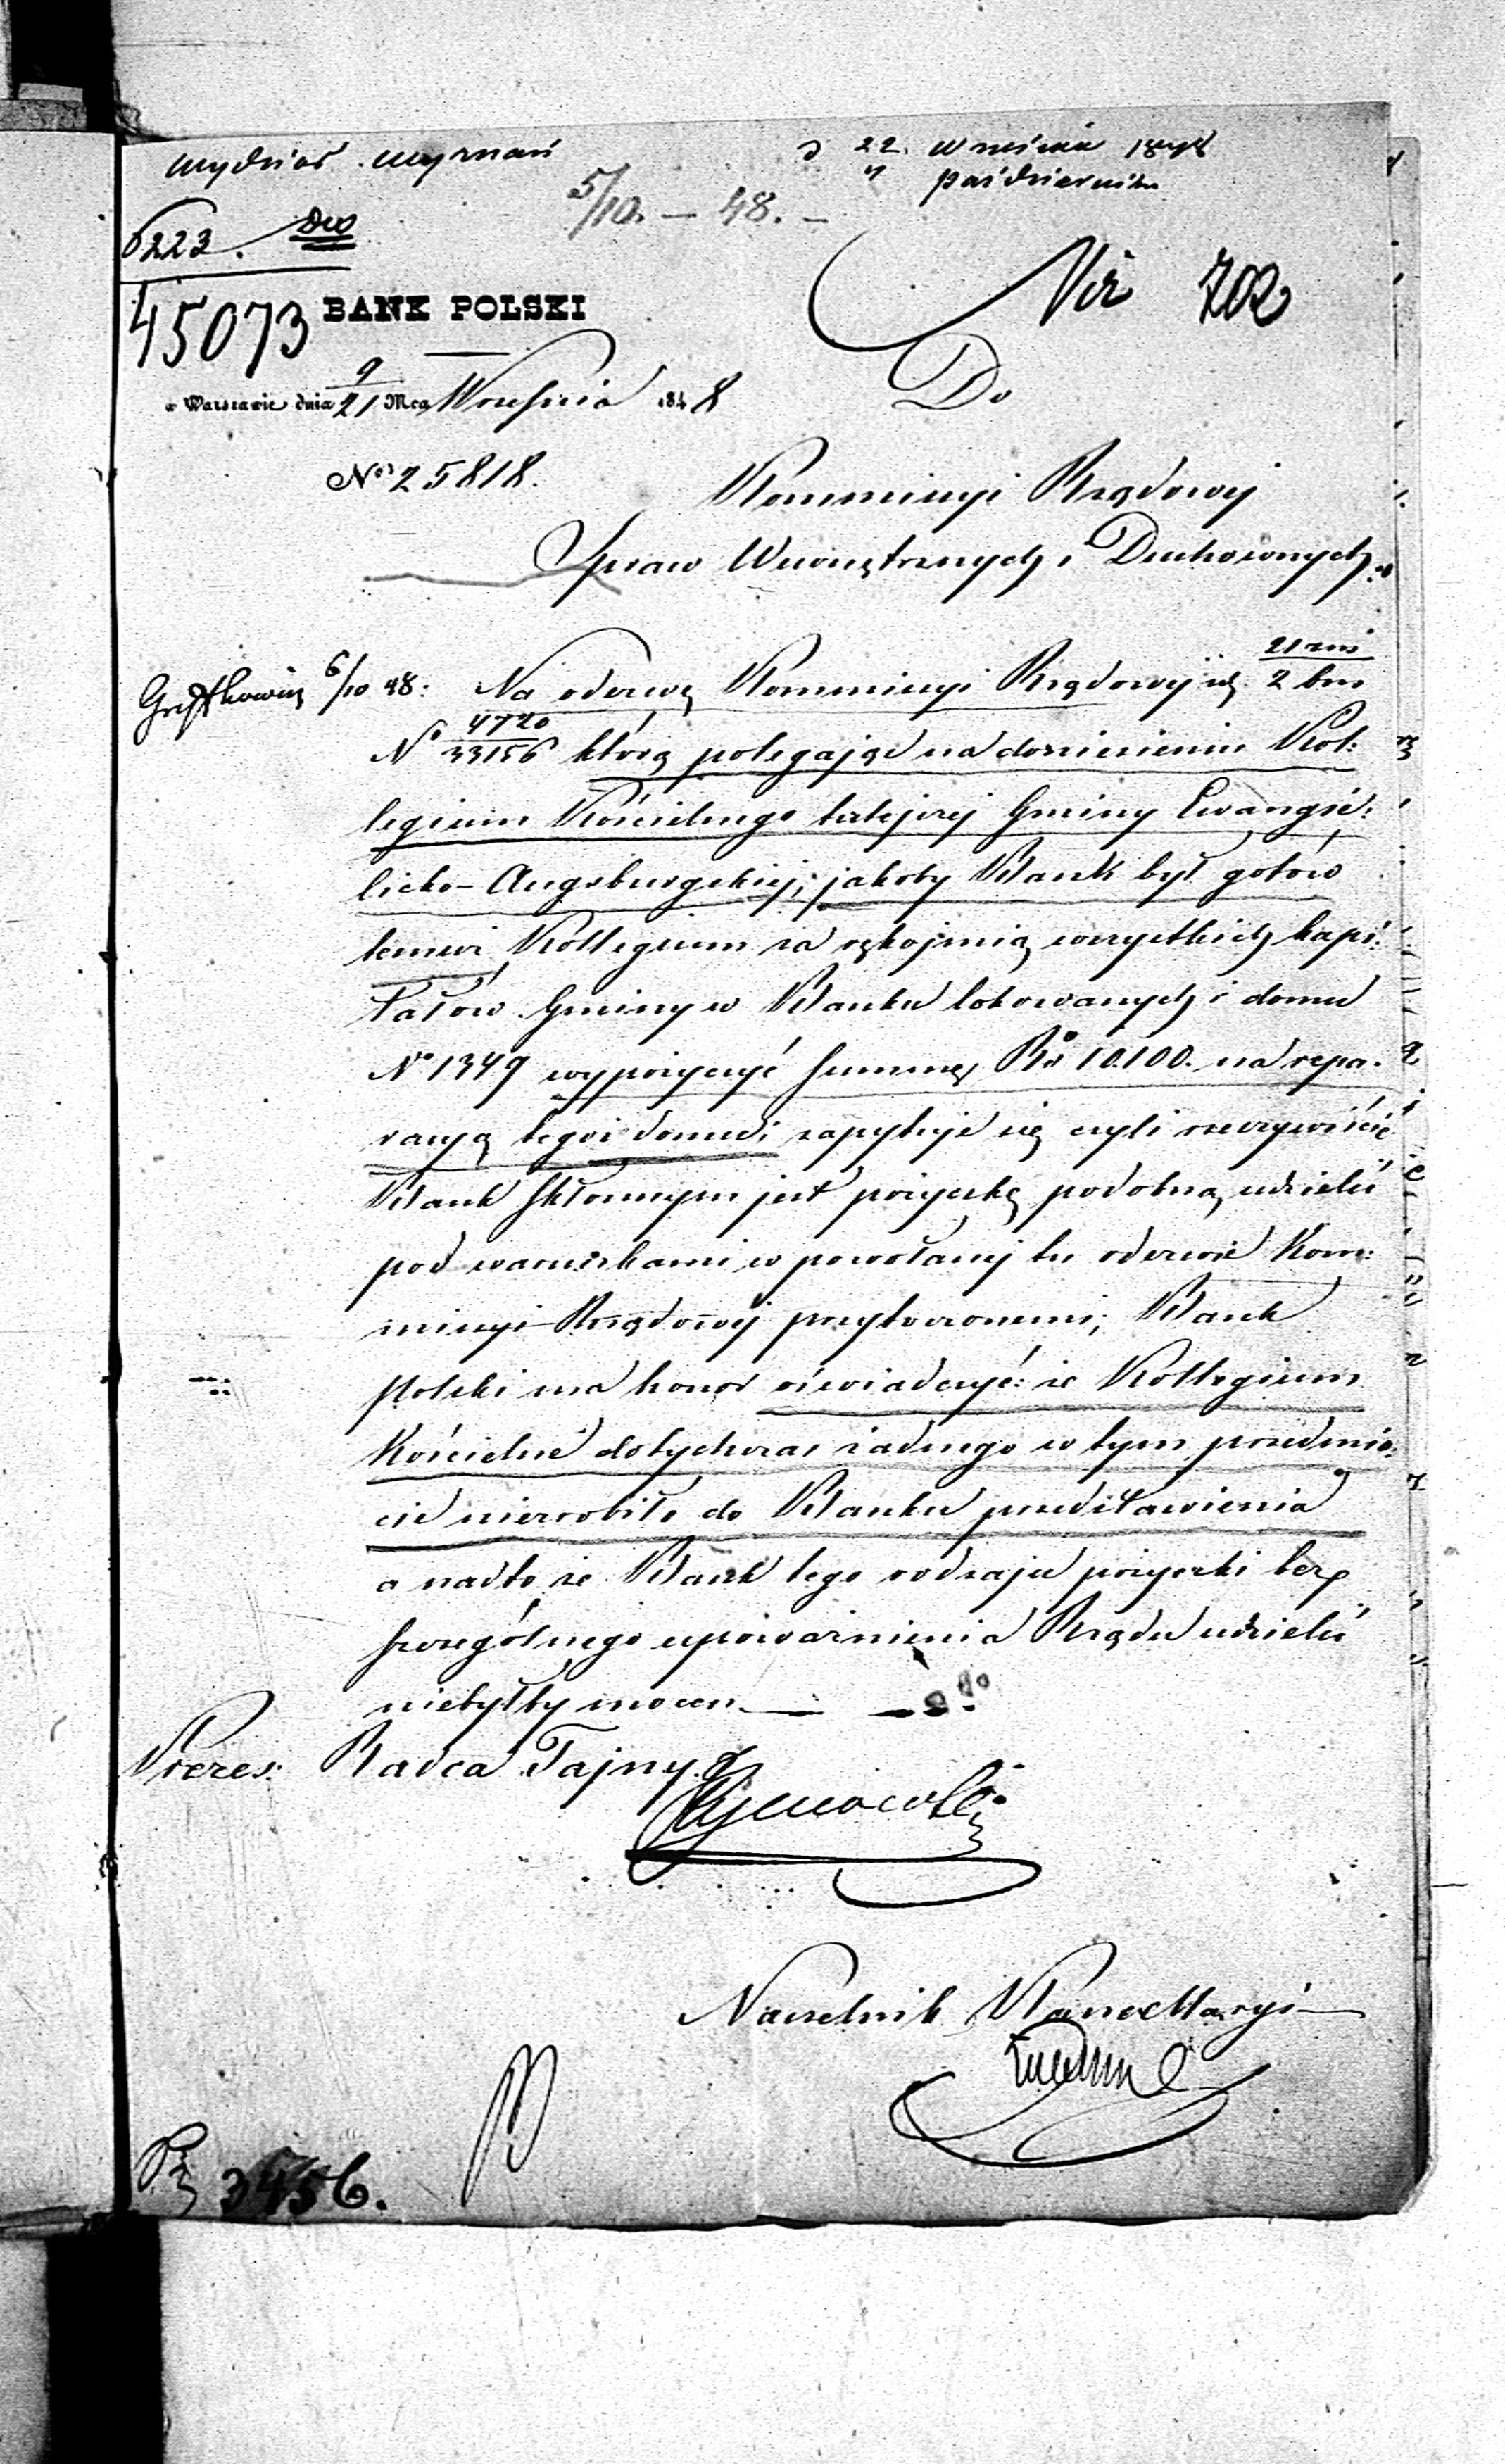 Wydział Wyznań
d 22. Września 1848
" Października
5/10. — 48. —
6223.
45073
BANK POLSKI
Nr 702
w Warszawie dnia 9/21 Mca Września 1848
Do
No 25818.
Kommissyi Rządowej
Spraw Wewnętrznych i Duchownych.
6/10 48:
Na odezwę Kommissyi Rządowej z 21 zm/2 bm
No 4720/33156 którą polegając na doniesieniu Kol:
legium Kościelnego tutejszej Gminy Ewangie:
licko-Augsburgskiej, jakoby Bank był gotów
temuż Kollegium za rękojmią wszystkich kapi:
tałów Gminy w Banku lokowanych i domu
No 1349 wypożyczyć summę Rs 10.100. na repa:
racyą tegoż domu; zapytuje się czyli rzeczywiście
Bank skłonnym jest pożyczkę podobną udzielić
pod warunkami w powołanej tu odezwie Kom:
missyi Rządowej przytoczonemi; Bank
Polski ma honor oświadczyć: że Kollegium
Kościelne dotychczas żadnego w tym przedmio:
cie nierobiło do Banku przedstawienia
a nadto że Bank tego rodzaju pożyczki bez
szczególnego upoważnienia Rządu udzielić
niebyłby mocen.
Prezes: Radca Tajny
Naczelnik Kancellaryi
3456.